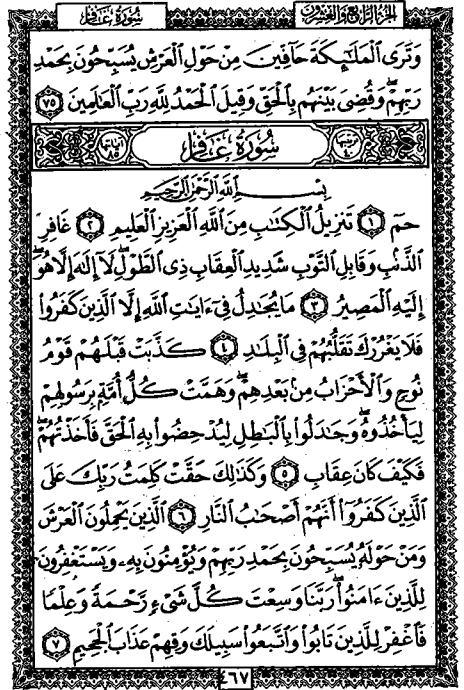 الجزء الرابع والعشرون
سُورَةُ غَافِر
وَتَرَى ٱلْمَلَٰٓئِكَةَ حَآفِّينَ مِنْ حَوْلِ ٱلْعَرْشِ يُسَبِّحُونَ بِحَمْدِ
رَبِّهِمْ ۖ وَقُضِىَ بَيْنَهُم بِٱلْحَقِّ وَقِيلَ ٱلْحَمْدُ لِلَّهِ رَبِّ ٱلْعَٰلَمِينَ ٧٥
ترتيبها ٤٠ سُورَةُ غَافِر آياتها ٨٥
بِسْمِ ٱللَّهِ ٱلرَّحْمَٰنِ ٱلرَّحِيمِ
حمٓ ١ تَنزِيلُ ٱلْكِتَٰبِ مِنَ ٱللَّهِ ٱلْعَزِيزِ ٱلْعَلِيمِ ٢ غَافِرِ
ٱلذَّنۢبِ وَقَابِلِ ٱلتَّوْبِ شَدِيدِ ٱلْعِقَابِ ذِى ٱلطَّوْلِ ۖ لَآ إِلَٰهَ إِلَّا هُوَ ۖ
إِلَيْهِ ٱلْمَصِيرُ ٣ مَا يُجَٰدِلُ فِىٓ ءَايَٰتِ ٱللَّهِ إِلَّا ٱلَّذِينَ كَفَرُوا۟
فَلَا يَغْرُرْكَ تَقَلُّبُهُمْ فِى ٱلْبِلَٰدِ ٤ كَذَّبَتْ قَبْلَهُمْ قَوْمُ
نُوحٍ وَٱلْأَحْزَابُ مِنۢ بَعْدِهِمْ ۖ وَهَمَّتْ كُلُّ أُمَّةٍۭ بِرَسُولِهِمْ
لِيَأْخُذُوهُ ۖ وَجَٰدَلُوا۟ بِٱلْبَٰطِلِ لِيُدْحِضُوا۟ بِهِ ٱلْحَقَّ فَأَخَذْتُهُمْ ۖ
فَكَيْفَ كَانَ عِقَابِ ٥ وَكَذَٰلِكَ حَقَّتْ كَلِمَتُ رَبِّكَ عَلَى
ٱلَّذِينَ كَفَرُوٓا۟ أَنَّهُمْ أَصْحَٰبُ ٱلنَّارِ ٦ ٱلَّذِينَ يَحْمِلُونَ ٱلْعَرْشَ
وَمَنْ حَوْلَهُۥ يُسَبِّحُونَ بِحَمْدِ رَبِّهِمْ وَيُؤْمِنُونَ بِهِۦ وَيَسْتَغْفِرُونَ
لِلَّذِينَ ءَامَنُوا۟ ۖ رَبَّنَا وَسِعْتَ كُلَّ شَىْءٍ رَّحْمَةً وَعِلْمًا
فَٱغْفِرْ لِلَّذِينَ تَابُوا۟ وَٱتَّبَعُوا۟ سَبِيلَكَ وَقِهِمْ عَذَابَ ٱلْجَحِيمِ ٧
٤٦٧